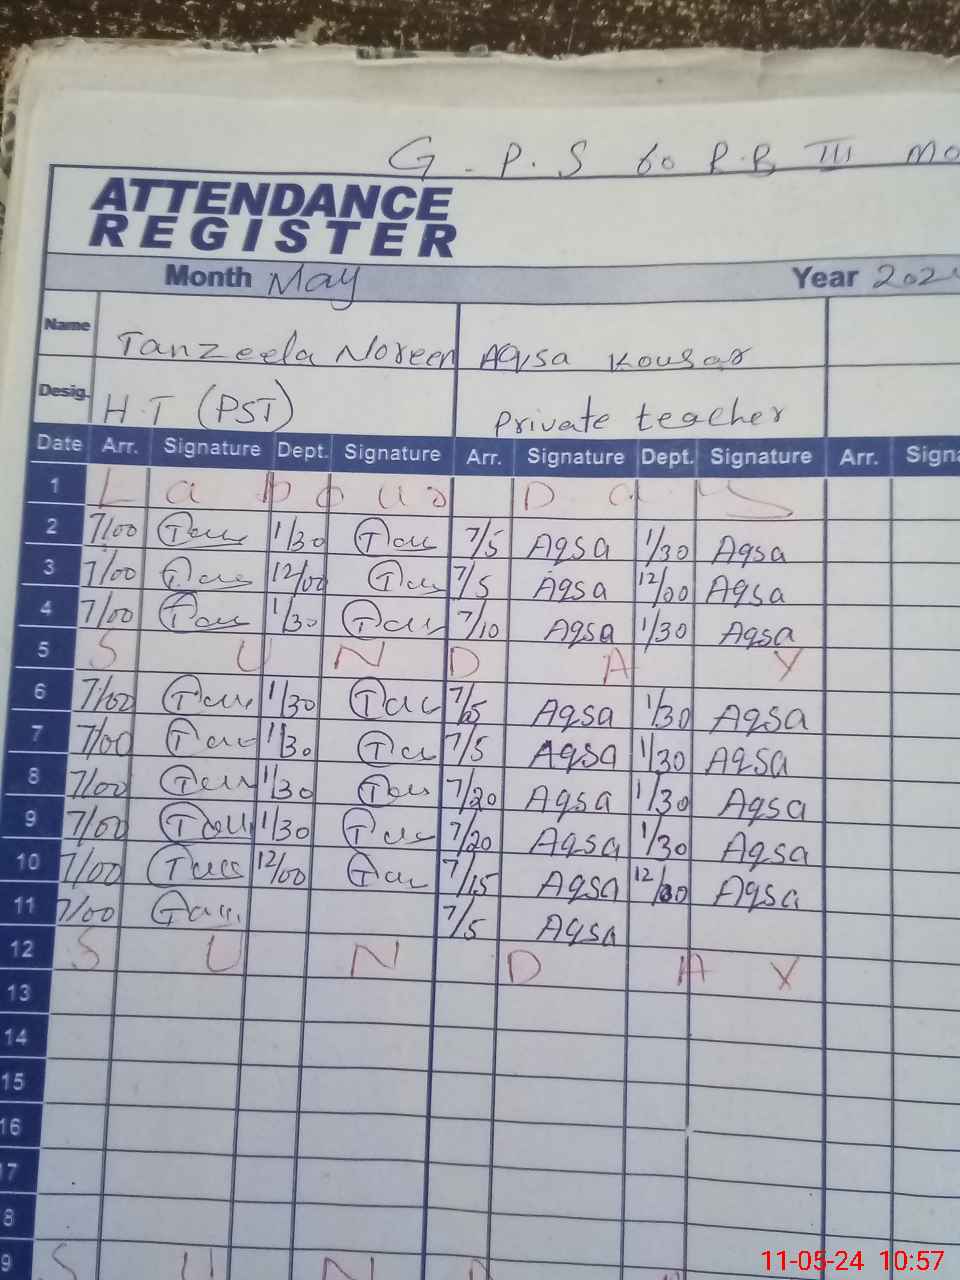 G.P.S 60 R.B III
ATTENDANCE
REGISTER
Month May Year 202
Name Tanzeela Noreen Aqsa Kousar
Desig. H.T (PST) Private teacher
Date Arr. Signature Dept. Signature Arr. Signature Dept. Signature Arr. Signa
1 Labour Day
2 7/00 Tan 1/30 Tan 7/5 Aqsa 1/30 Aqsa
3 7/00 Tan 12/00 Tan 7/5 Aqsa 12/00 Aqsa
4 7/00 Tan 1/30 Tan 7/10 Aqsa 1/30 Aqsa
5 SUNDAY
6 7/00 Tan 1/30 Tan 7/5 Aqsa 1/30 Aqsa
7 7/00 Tan 1/30 Tan 7/5 Aqsa 1/30 Aqsa
8 7/00 Tan 1/30 Tan 7/20 Aqsa 1/30 Aqsa
9 7/00 Tan 1/30 Tan 7/20 Aqsa 1/30 Aqsa
10 7/00 Tan 12/00 Tan 7/15 Aqsa 12/00 Aqsa
11 7/00 Tan 7/5 Aqsa
12 SUNDAY
13
14
15
16
17
8
9 SUND
11-05-24 10:57